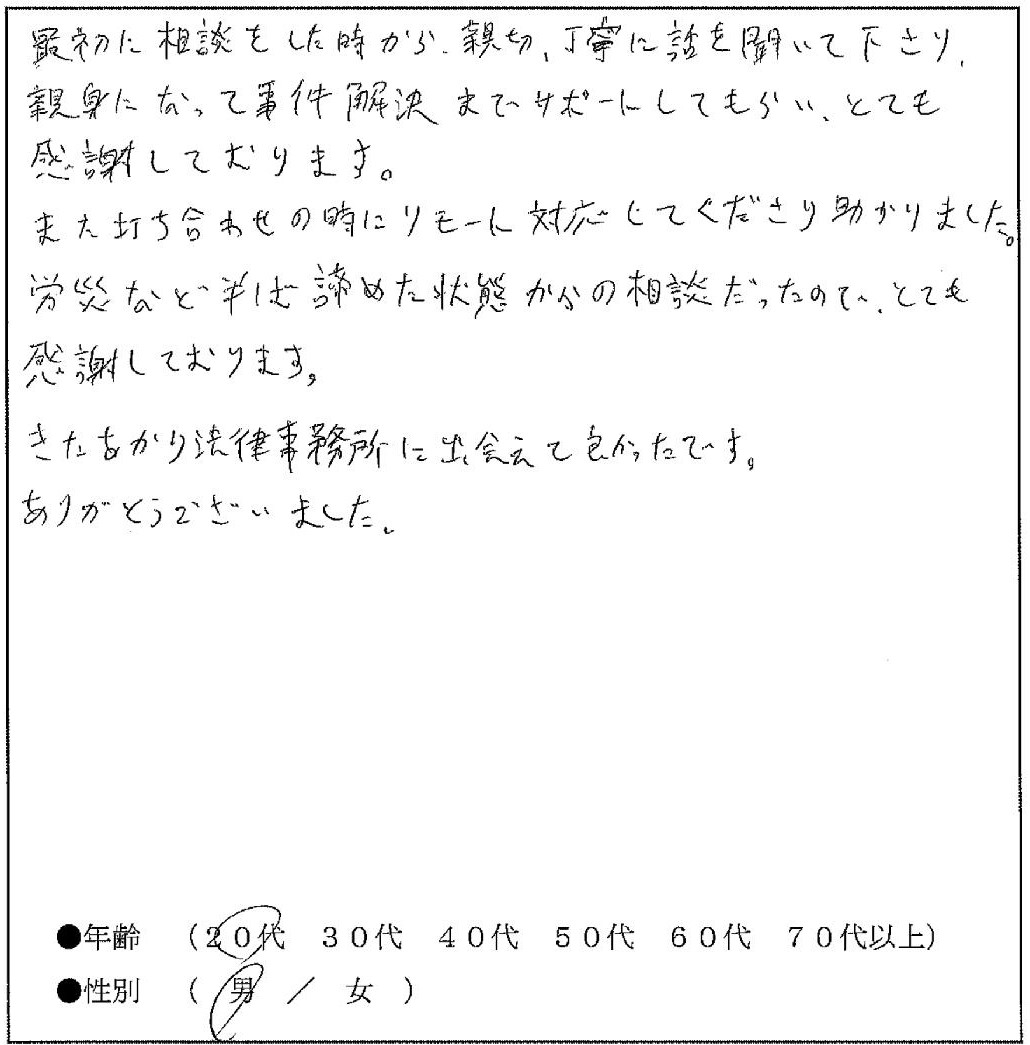 最初に相談をした時から、親切、丁寧に話を聞いて下さり、
親身になって事件解決までサポートしてもらい、とても
感謝しております。
また打ち合わせの時にリモート対応してくださり助かりました。
労災など半ば諦めた状態からの相談だったので、とても
感謝しております。
きたあかり法律事務所に出会えて良かったです。
ありがとうございました。
●年齢 （20代 30代 40代 50代 60代 70代以上）
●性別 （ 男 ／ 女 ）